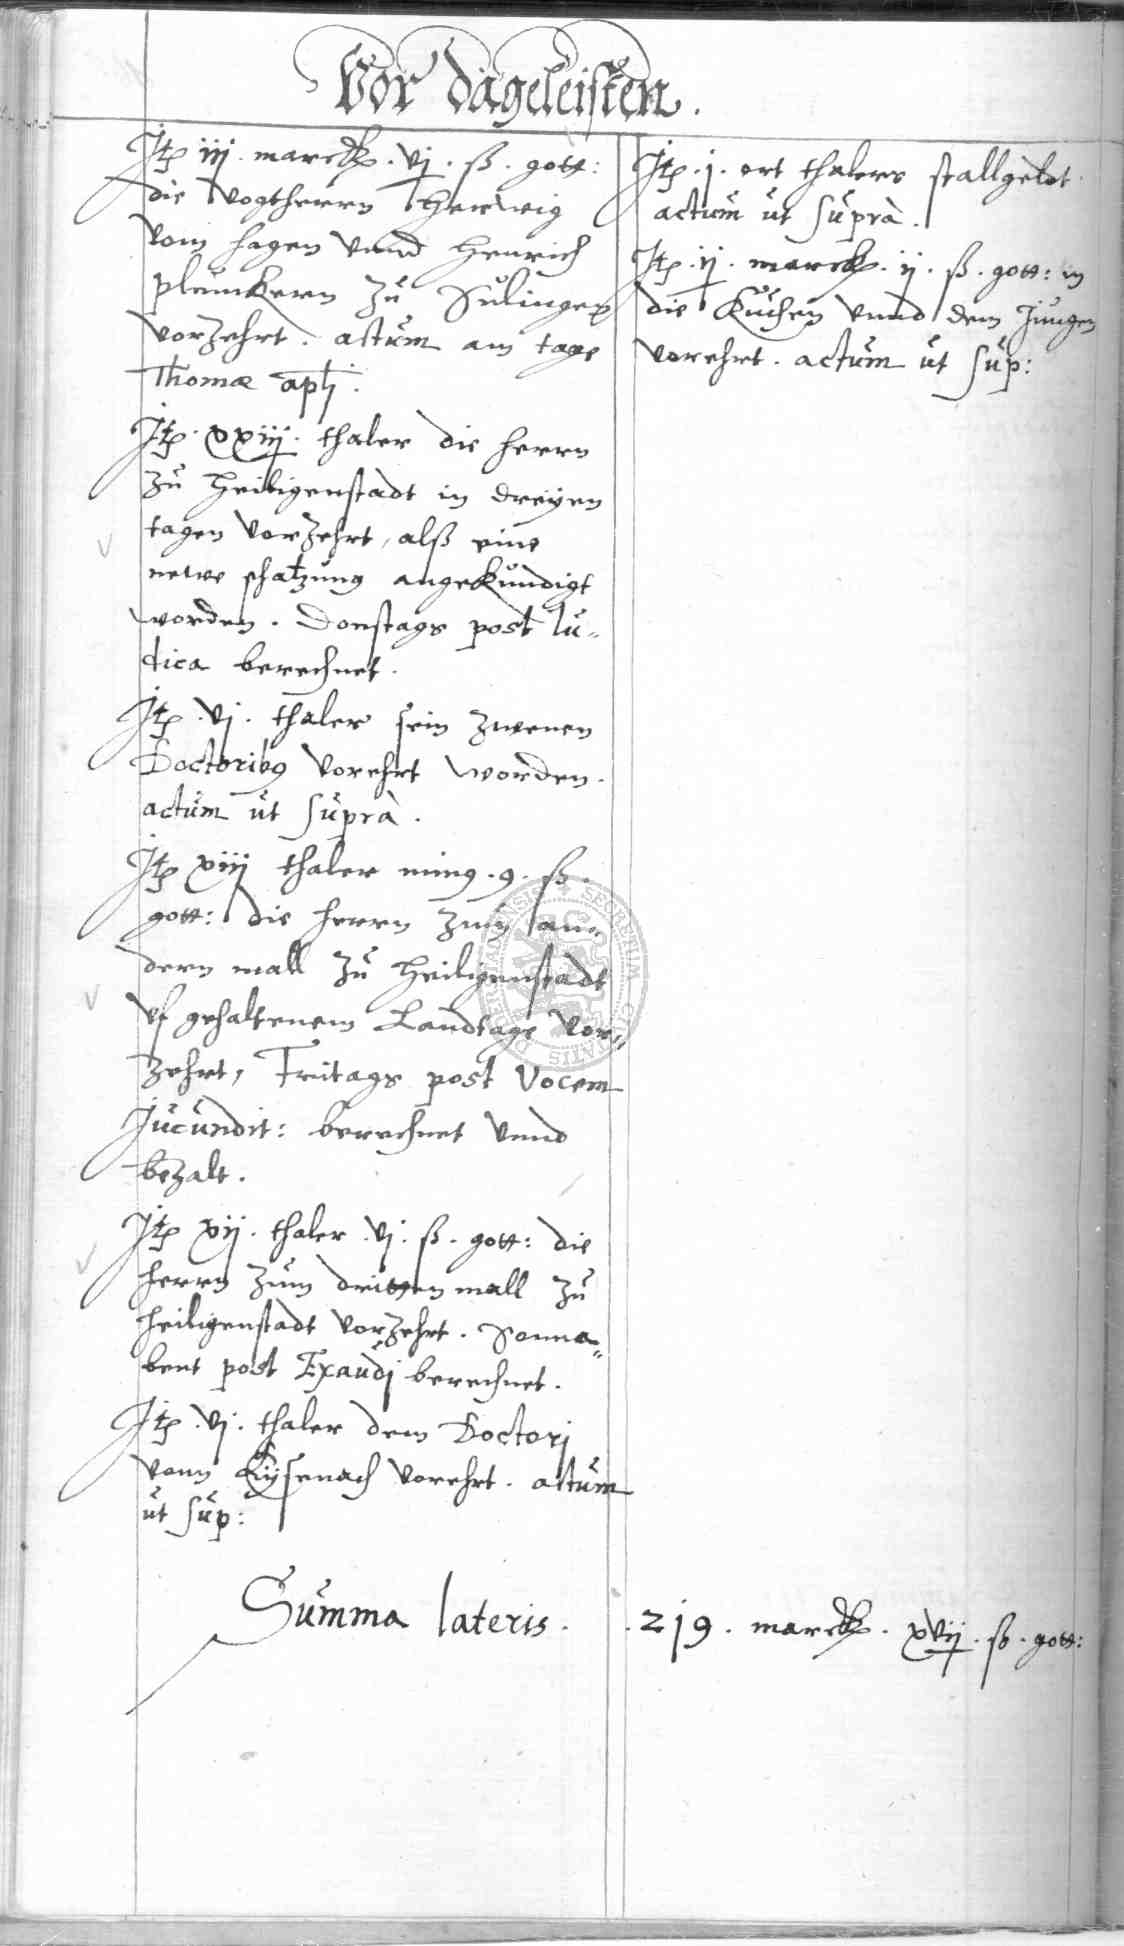 Vor dageleisten.
Itē iij. marck. vj. ß. gott:
die Vogtherrn Herwig
vom Hagen vnnd Henrich
plunckern zu Sulingen
vorzehrt. actum am tage
Thomæ apłi.
Itē. xxiij. thaler die herrn
zu Heiligenstadt in dreyen
tagen vorzehrt, alß eine
newe schatzung angekundigt
worden. Donstags post lu-
dica berechnet.
Itē. vj. thaler sein zwenen
Doctorib9 vorehrt worden.
actum ut suprà.
Itē xiij thaler min9. 9. ß.
gott: die herrn zum an-
dern mall zu Heiligenstadt
vf gehaltenem Landtage vor-
zehrt, Fritags post Vocem
Jucundit: berechnet vnnd
bezalt.
Itē xij. thaler. vj. ß. gott: die
herrn zum dritten mall zu
Heiligenstadt vorzehrt. Sonna-
bent post Exaudj berechnet.
Itē. vj. thaler dem Doctorj
vonn Eysenach vorehrt. actum
ut sup:
Itē. j. ort thalers stallgelt.
actum ut suprà.
Itē. ij. marck. ij. ß. gott: in
die Kuchen vnnd dem Jungen
vorehrt. actum ut sup:
Summa lateris. 2j9. marck. xvij. ß. gott:
SECRETUM CIVITATIS DUDERSTADENSIS